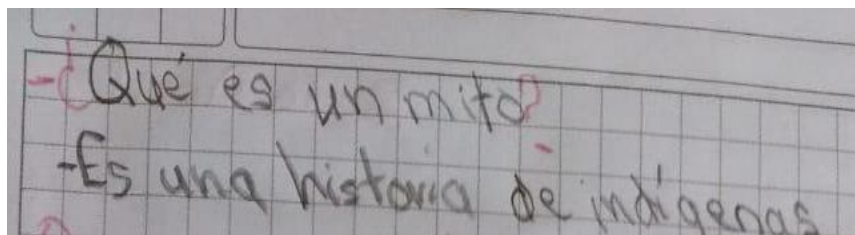 -¿Qué es un mito?
-Es una historia de indígenas